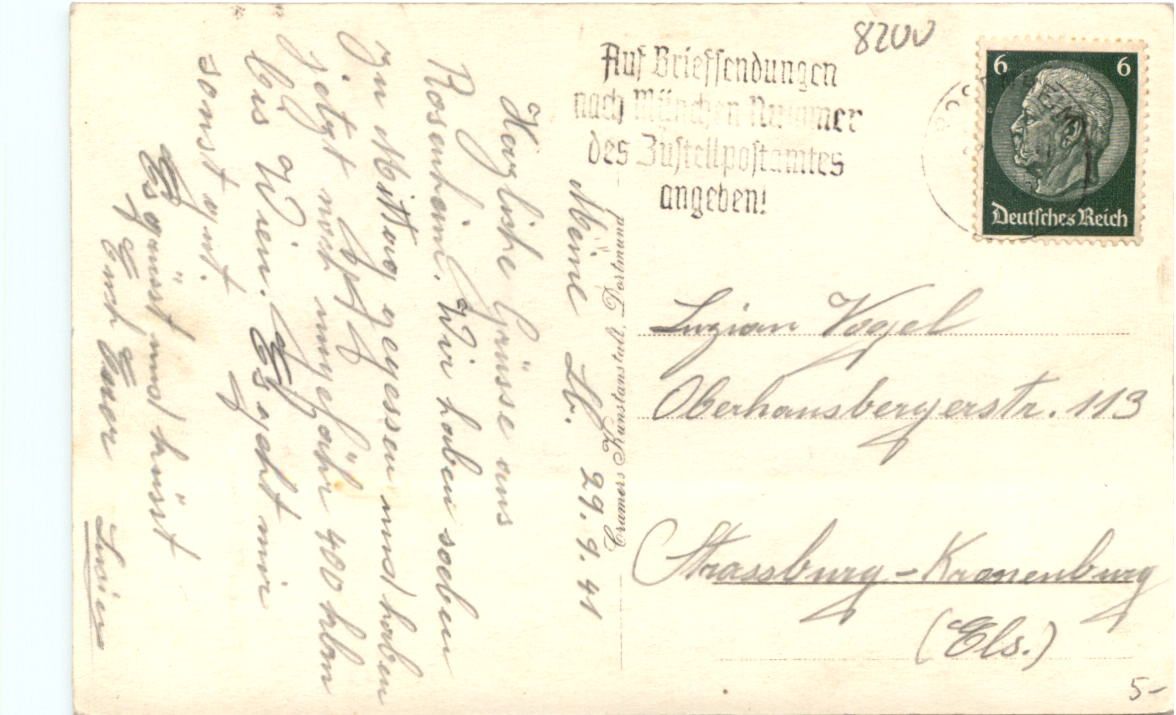 8200
Auf Briefsendungen
nach München Nummer
des Zustellpostamtes
angeben!
6 6
Deutsches Reich
Meine Lb. 29.9.41
Herzliche Grüsse aus
Rosenheim. Wir haben soeben
zu Mittag gegessen und haben
jetzt noch ungefähr 400 klm
bis Wien. Es geht mir
sonst gut.
Es grüsst und küsst
Euch Euer
Lucien
Cramers Kunstanstalt, Dortmund
Luzian Vogel
Oberhausbergerstr. 113
Strassburg-Kronenburg
(Els.)
5-